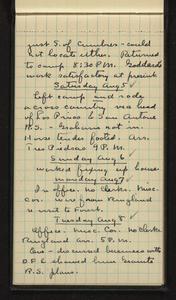 just S. of Cumbres - could
not locate either. Returned
to camp 8:30 P.M. Goddards
work satisfactory at present
Saturday Aug 5
Left camp and rode
across country via head
of Los Pinos to San Antone
R.S. - Grahams not in.
Horse tender footed. Arr.
Tres Piedras 9 P.M.
Sunday Aug 6
worked fixing up house
Monday Aug 7
In office. no clerk. Misc.
Cor. wire from Ringland
to visit to Forest.
Tuesday Aug 8
Office. Misc. Cor. no clerk
Ringland arr. 5 P.M.
Eve - discussed business with
D.F.
R.S. plans.